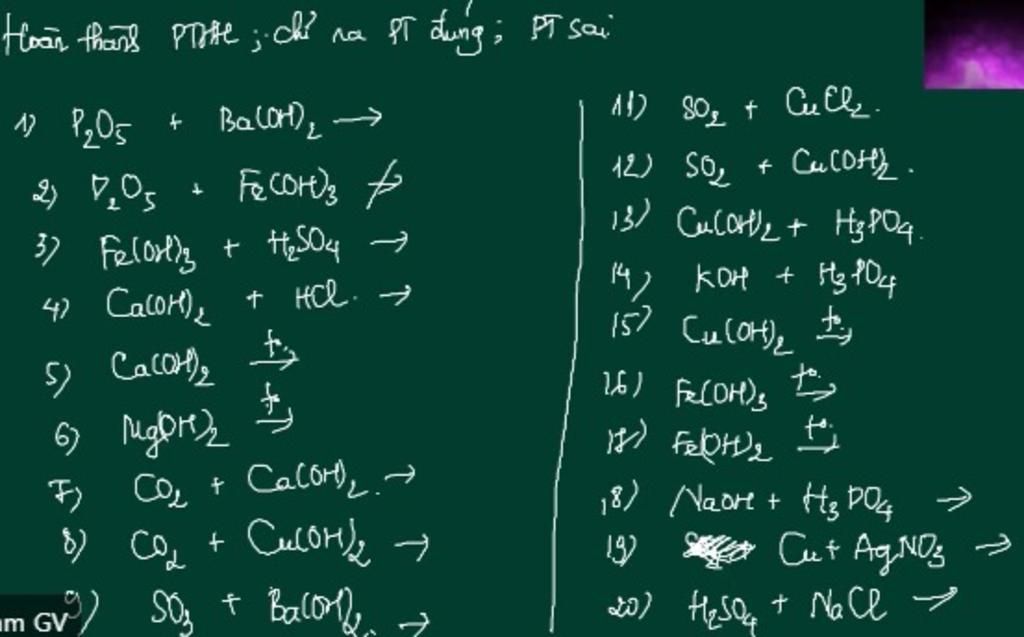 Hoàn thành PTHH ; chỉ ra PT đúng ; PT sai
1) P₂O₅ + Ba(OH)₂ →
2) P₂O₅ + Fe(OH)₃ ↛
3) Fe(OH)₃ + H₂SO₄ →
4) Ca(OH)₂ + HCl. →
5) Ca(OH)₂ t° →
6) Mg(OH)₂ t° →
7) CO₂ + Ca(OH)₂. →
8) CO₂ + Cu(OH)₂ →
9) SO₃ + Ba(OH)₂. →
am GV
11) SO₂ + CuCl₂.
12) SO₂ + Cu(OH)₂.
13) Cu(OH)₂ + H₃PO₄.
14) KOH + H₃PO₄
15) Cu(OH)₂ t° →
16) Fe(OH)₃ t° →
17) Fe(OH)₂ t° →
18) NaOH + H₃PO₄ →
19) Cu + AgNO₃ →
20) H₂SO₄ + NaCl →